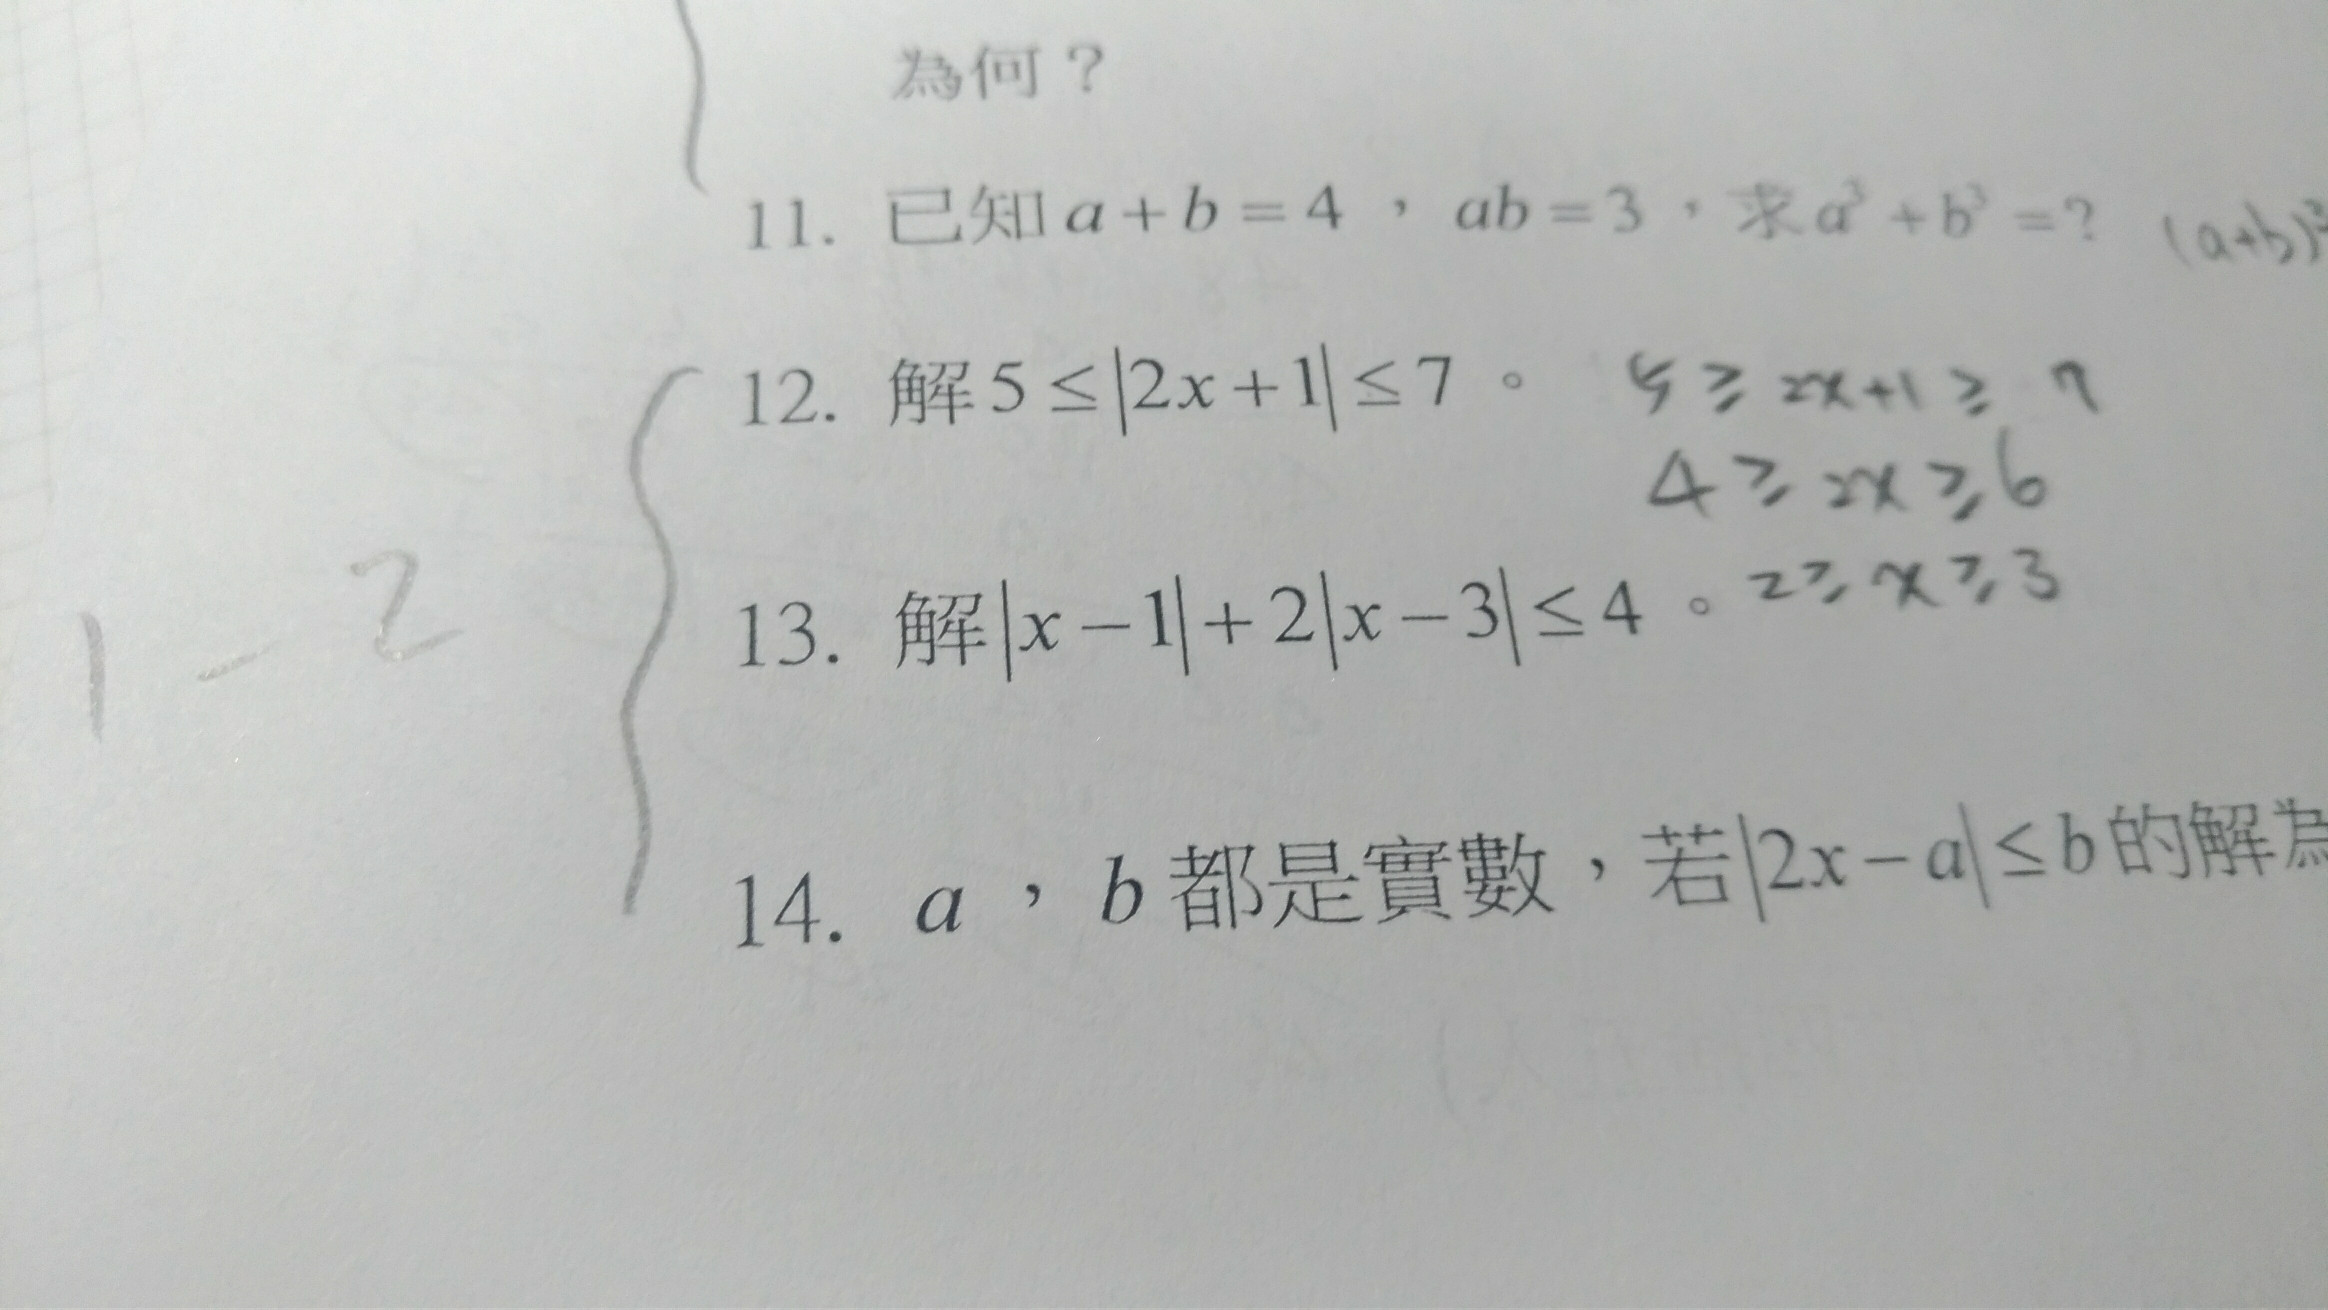 為何？
11. 已知 a + b = 4 ， ab = 3 ，求 a³ + b³ = ? (a+b)³
12. 解 5 ≤ |2x + 1| ≤ 7 。 5 ≥ 2x+1 ≥ 7
4 ≥ 2x ≥ 6
1 - 2
13. 解 |x − 1| + 2|x − 3| ≤ 4 。 2 ≥ x ≥ 3
14. a ， b 都是實數，若 |2x − a| ≤ b 的解為